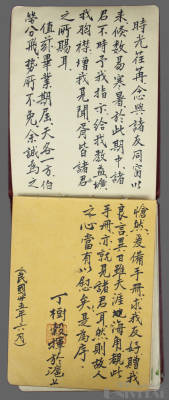 時光荏苒念與諸友同窗以
來倏數易寒暑於此期中諸
君不時予我指示給我教益擴
我胸襟增我見聞胥皆諸君
之所賜耳
值茲畢業期屆天各一方伯
勞分飛勢所不免余誠為之
悵然爰備手冊求我友好贈我
良言異日雖天涯地海角觀此
手冊亦就見諸君耳然則故人
之心當有以慰矣是為序
丁樹穀揮於滬上
民國卅五年六月